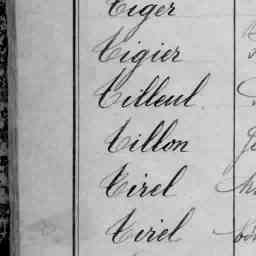 Tiger
Tigier
Tilleul
Tillon
Tirel
Tirel